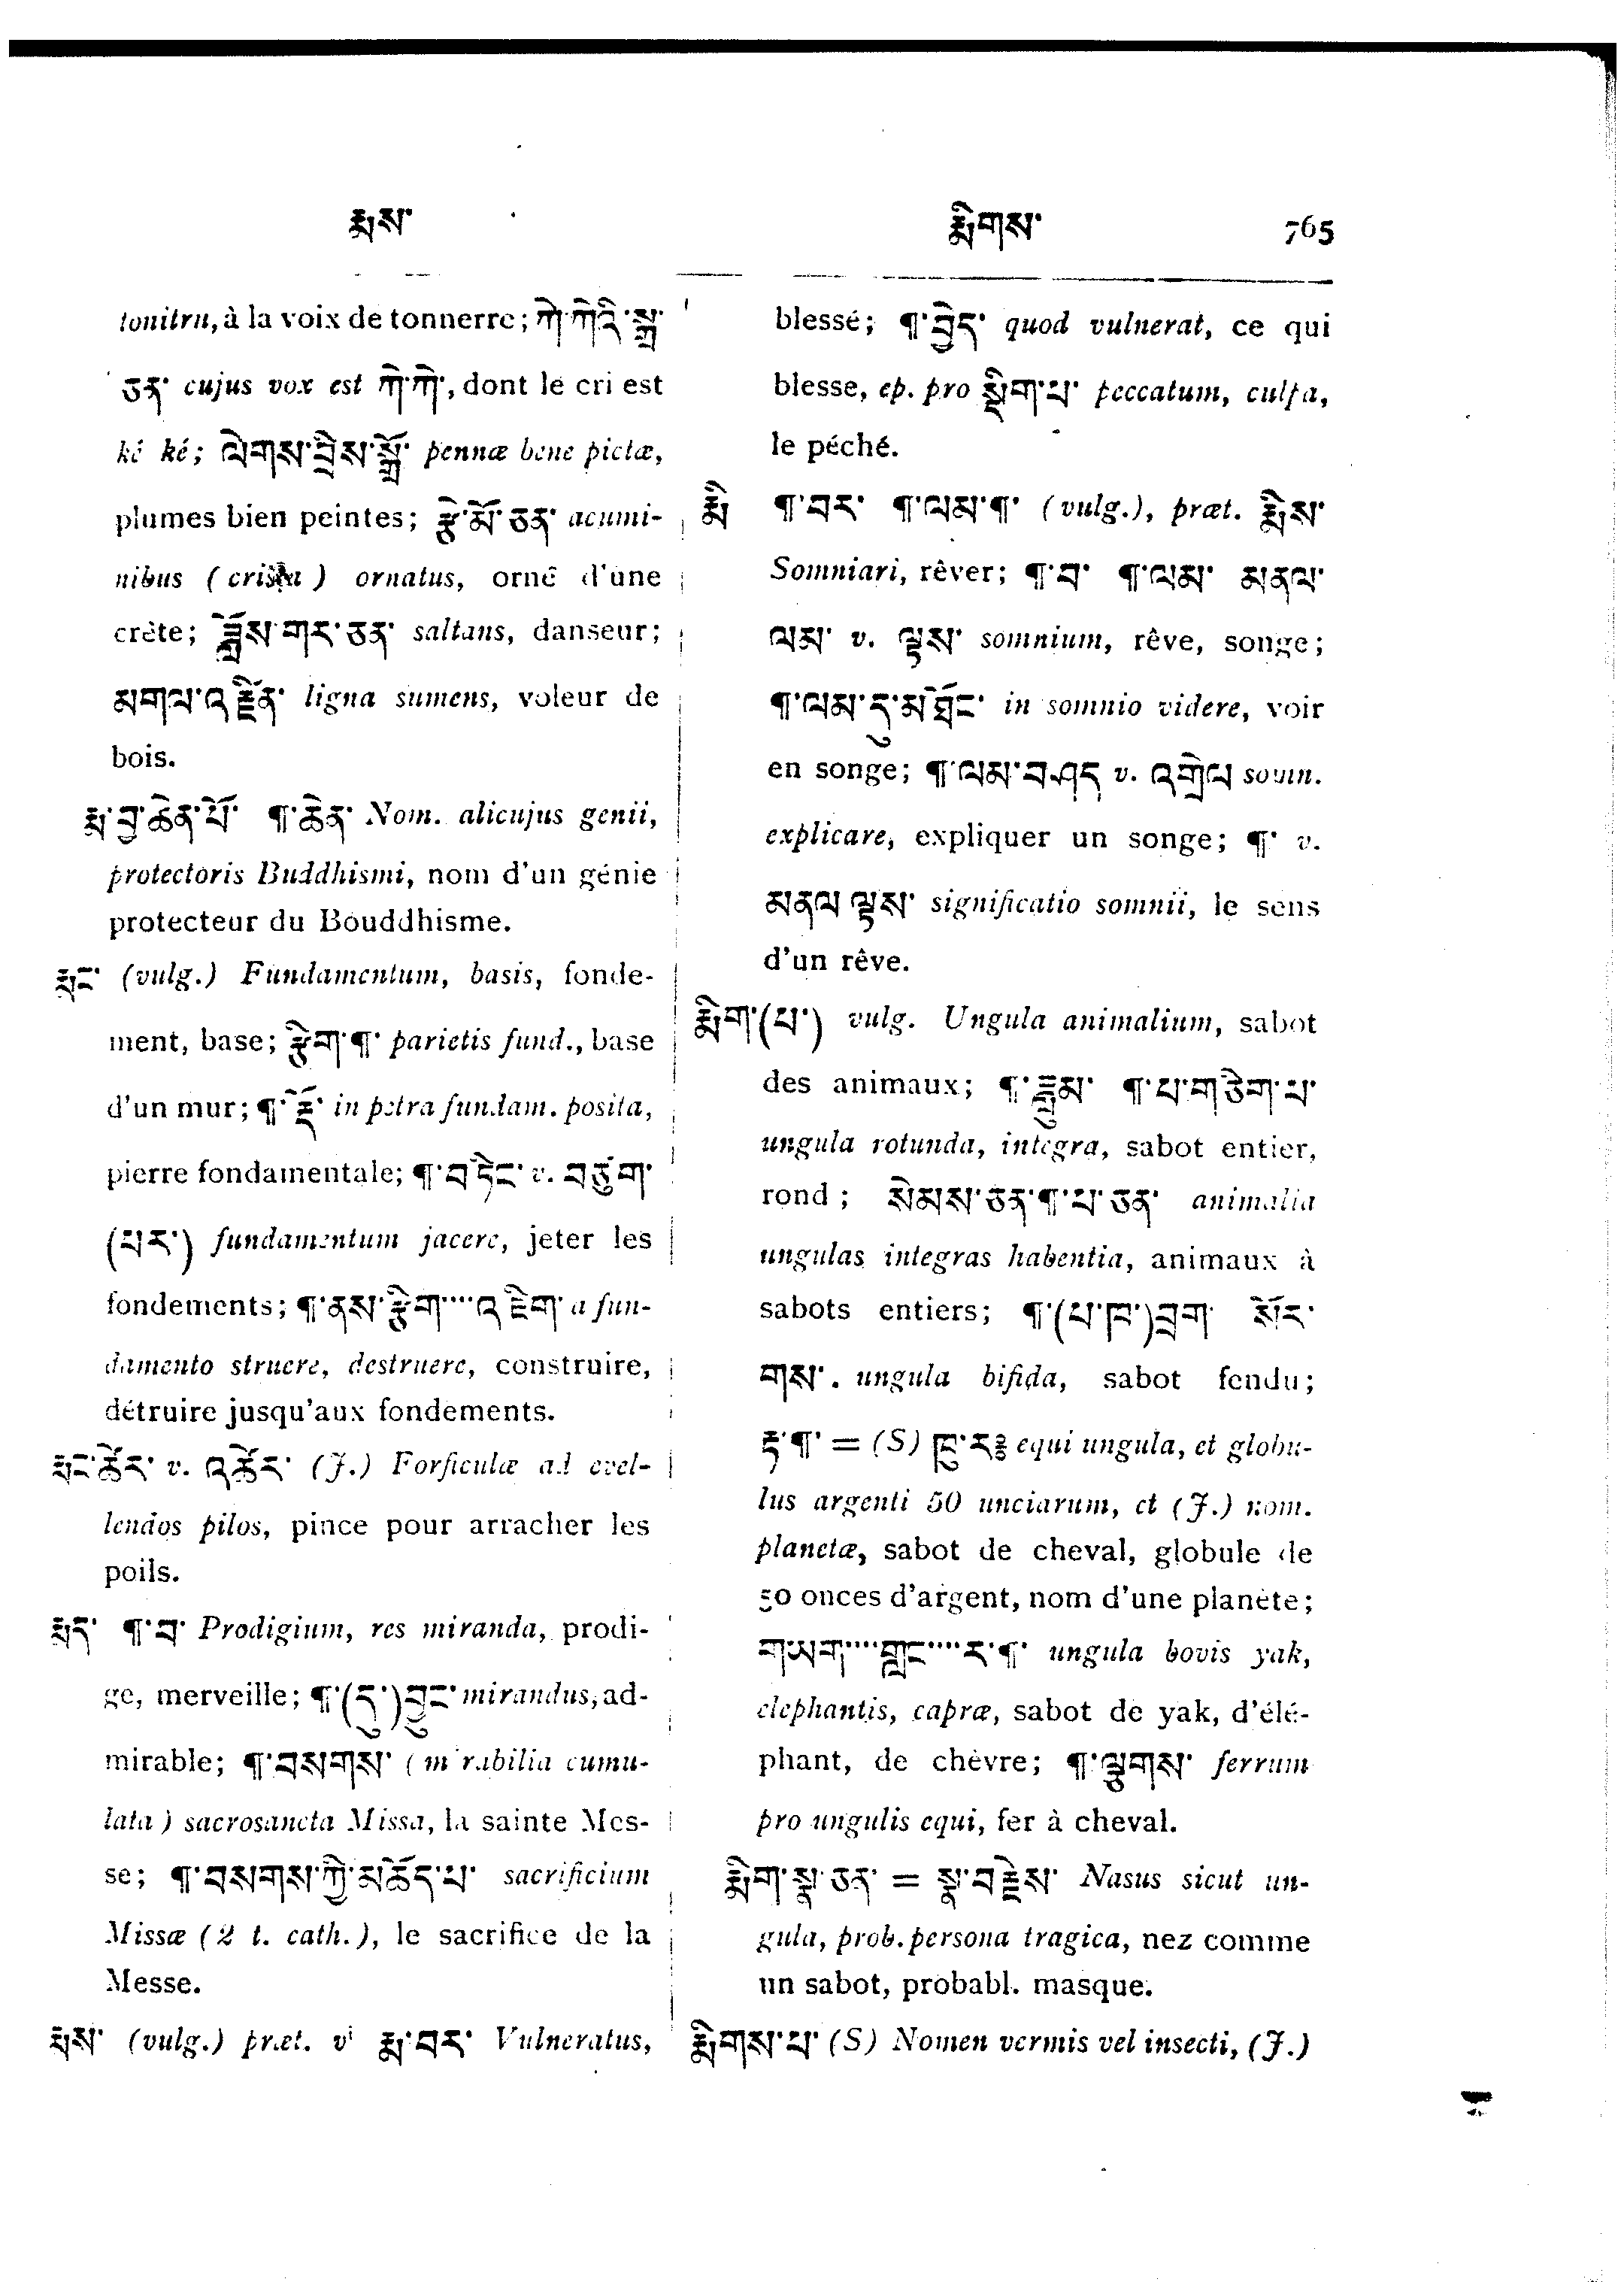 རྨས་
རྨིགས་ 765
tonitru, à la voix de tonnerre; ཀེ་ཀེའི་སྒྲ་
ཅན་ cujus vox est ཀེ་ཀེ་, dont le cri est
ké ké; ལེགས་བྲིས་སྒྲོ་ pennæ bene pictæ,
plumes bien peintes; རྩེ་མོ་ཅན་ acumi-
nibus (crista) ornatus, orné d'une
crète; ཟློས་གར་ཅན་ saltans, danseur;
མགལ་འཛིན་ ligna sumens, voleur de
bois.
རྨ་བྱ་ཆེན་པོ་ ¶་ཆེན་ Nom. alicujus genii,
protectoris Buddhismi, nom d'un génie
protecteur du Bouddhisme.
རྨང་ (vulg.) Fundamentum, basis, fonde-
ment, base; རྩིག་¶་ parietis fund., base
d'un mur; ¶་རྡོ་ in petra fundam. posita,
pierre fondamentale; ¶་བ་ཏིང་ v. བཙུག་
(པར་) fundamentum jacere, jeter les
fondements; ¶་ནས་རྩིག་....འཇིག་ a fun-
damento struere, destruere, construire,
détruire jusqu'aux fondements.
རྨང་ཚོར་ v. འཚོར་ (J.) Forficulæ ad evel-
lendos pilos, pince pour arracher les
poils.
རྨད་ ¶་བ་ Prodigium, res miranda, prodi-
ge, merveille; ¶་(དུ་)བྱུང་ mirandus, ad-
mirable; ¶་བསགས་ (mirabilia cumu-
lata) sacrosancta Missa, la sainte Mes-
se; ¶་བསགས་ཀྱི་མཆོད་པ་ sacrificium
Missæ (2 t. cath.), le sacrifice de la
Messe.
རྨས་ (vulg.) præt. v རྨ་བར་ Vulneratus,
blessé; ¶་བྱེད་ quod vulnerat, ce qui
blesse, ep. pro སྡིག་པ་ peccatum, culpa,
le péché.
རྨི ¶་བར་ ¶་ལམ་¶་ (vulg.), præt. རྨིས་
Somniari, rêver; ¶་བ་ ¶་ལམ་ མནལ་
ལམ་ v. ལྟས་ somnium, rêve, songe;
¶་ལམ་དུ་མཐོང་ in somnio videre, voir
en songe; ¶་ལམ་བཤད v. འགྲེལ somn.
explicare, expliquer un songe; ¶་ v.
མནལ ལྟས་ significatio somnii, le sens
d'un rêve.
རྨིག་(པ་) vulg. Ungula animalium, sabot
des animaux; ¶་ཟླུམ་ ¶་པ་གཅིག་པ་
ungula rotunda, integra, sabot entier,
rond; སེམས་ཅན་¶་པ་ཅན་ animalia
ungulas integras habentia, animaux à
sabots entiers; ¶་(པ་ཁ་)བྲག་ སོར་
གས་. ungula bifida, sabot fendu;
རྟ་¶་ = (S) equi ungula, et globu-
lus argenti 50 unciarum, et (J.) nom.
planetæ, sabot de cheval, globule de
50 onces d'argent, nom d'une planète;
གཡག་....གླང་....ར་¶་ ungula bovis yak,
elephantis, capræ, sabot de yak, d'élé-
phant, de chèvre; ¶་ལྕགས་ ferrum
pro ungulis equi, fer à cheval.
རྨིག་སྣ་ཅན་ = སྣ་བརྫེས་ Nasus sicut un-
gula, prob. persona tragica, nez comme
un sabot, probabl. masque.
རྨིགས་པ་ (S) Nomen vermis vel insecti, (J.)